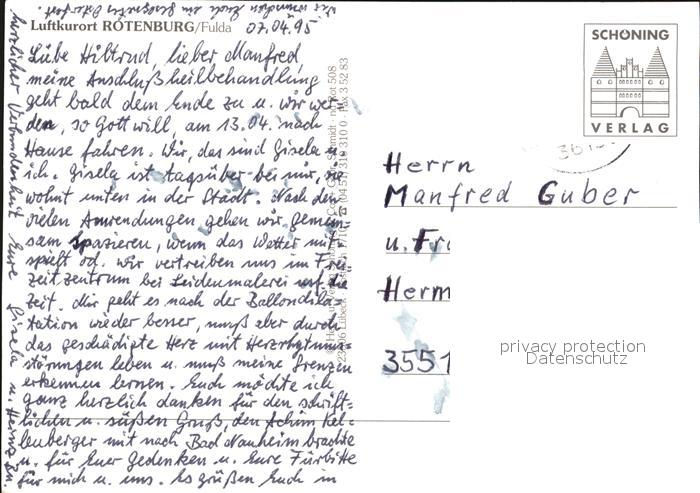 Luftkurort ROTENBURG/Fulda
07.04.95
Liebe Hiltrud, lieber Manfred,
meine Anschlußheilbehandlung
geht bald dem Ende zu u. wir wer-
den, so Gott will, am 13.04. nach
Hause fahren. Wir, das sind Gisela u.
ich. Gisela ist tagsüber bei mir, sie
wohnt unten in der Stadt. Nach den
vielen Anwendungen gehen wir gemein-
sam spazieren, wenn das Wetter mit-
spielt od. wir vertreiben uns im Frei-
zeitzentrum bei Seidenmalerei die
Zeit. Mir geht es nach der Ballondila-
tation wieder besser, muß aber durch
das geschädigte Herz mit Herzrhytmus-
störungen leben u. muß meine Grenzen
erkennen lernen. Euch möchte ich
ganz herzlich danken für den schrift-
lichen u. süßen Gruß, den Achim Kel-
lenberger mit nach Bad Nauheim brachte
u. für Euer Gedenken u. Eure Fürbitte
für mich u. uns. Es grüßen Euch in
herzlicher Verbundenheit Eure Gisela u. Heinz
Wir wünschen Euch ein gesegnetes Osterfest.
SCHÖNING
VERLAG
Herrn
Manfred Guber
u. Fr
Herm
3551
privacy protection
Datenschutz